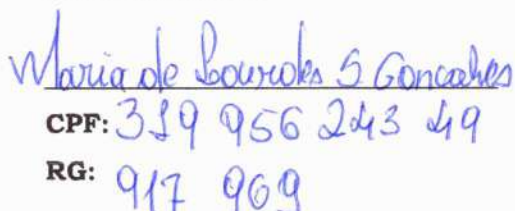 Maria de Lourdes S Goncalves
CPF: 319 956 243 49
RG: 917 969